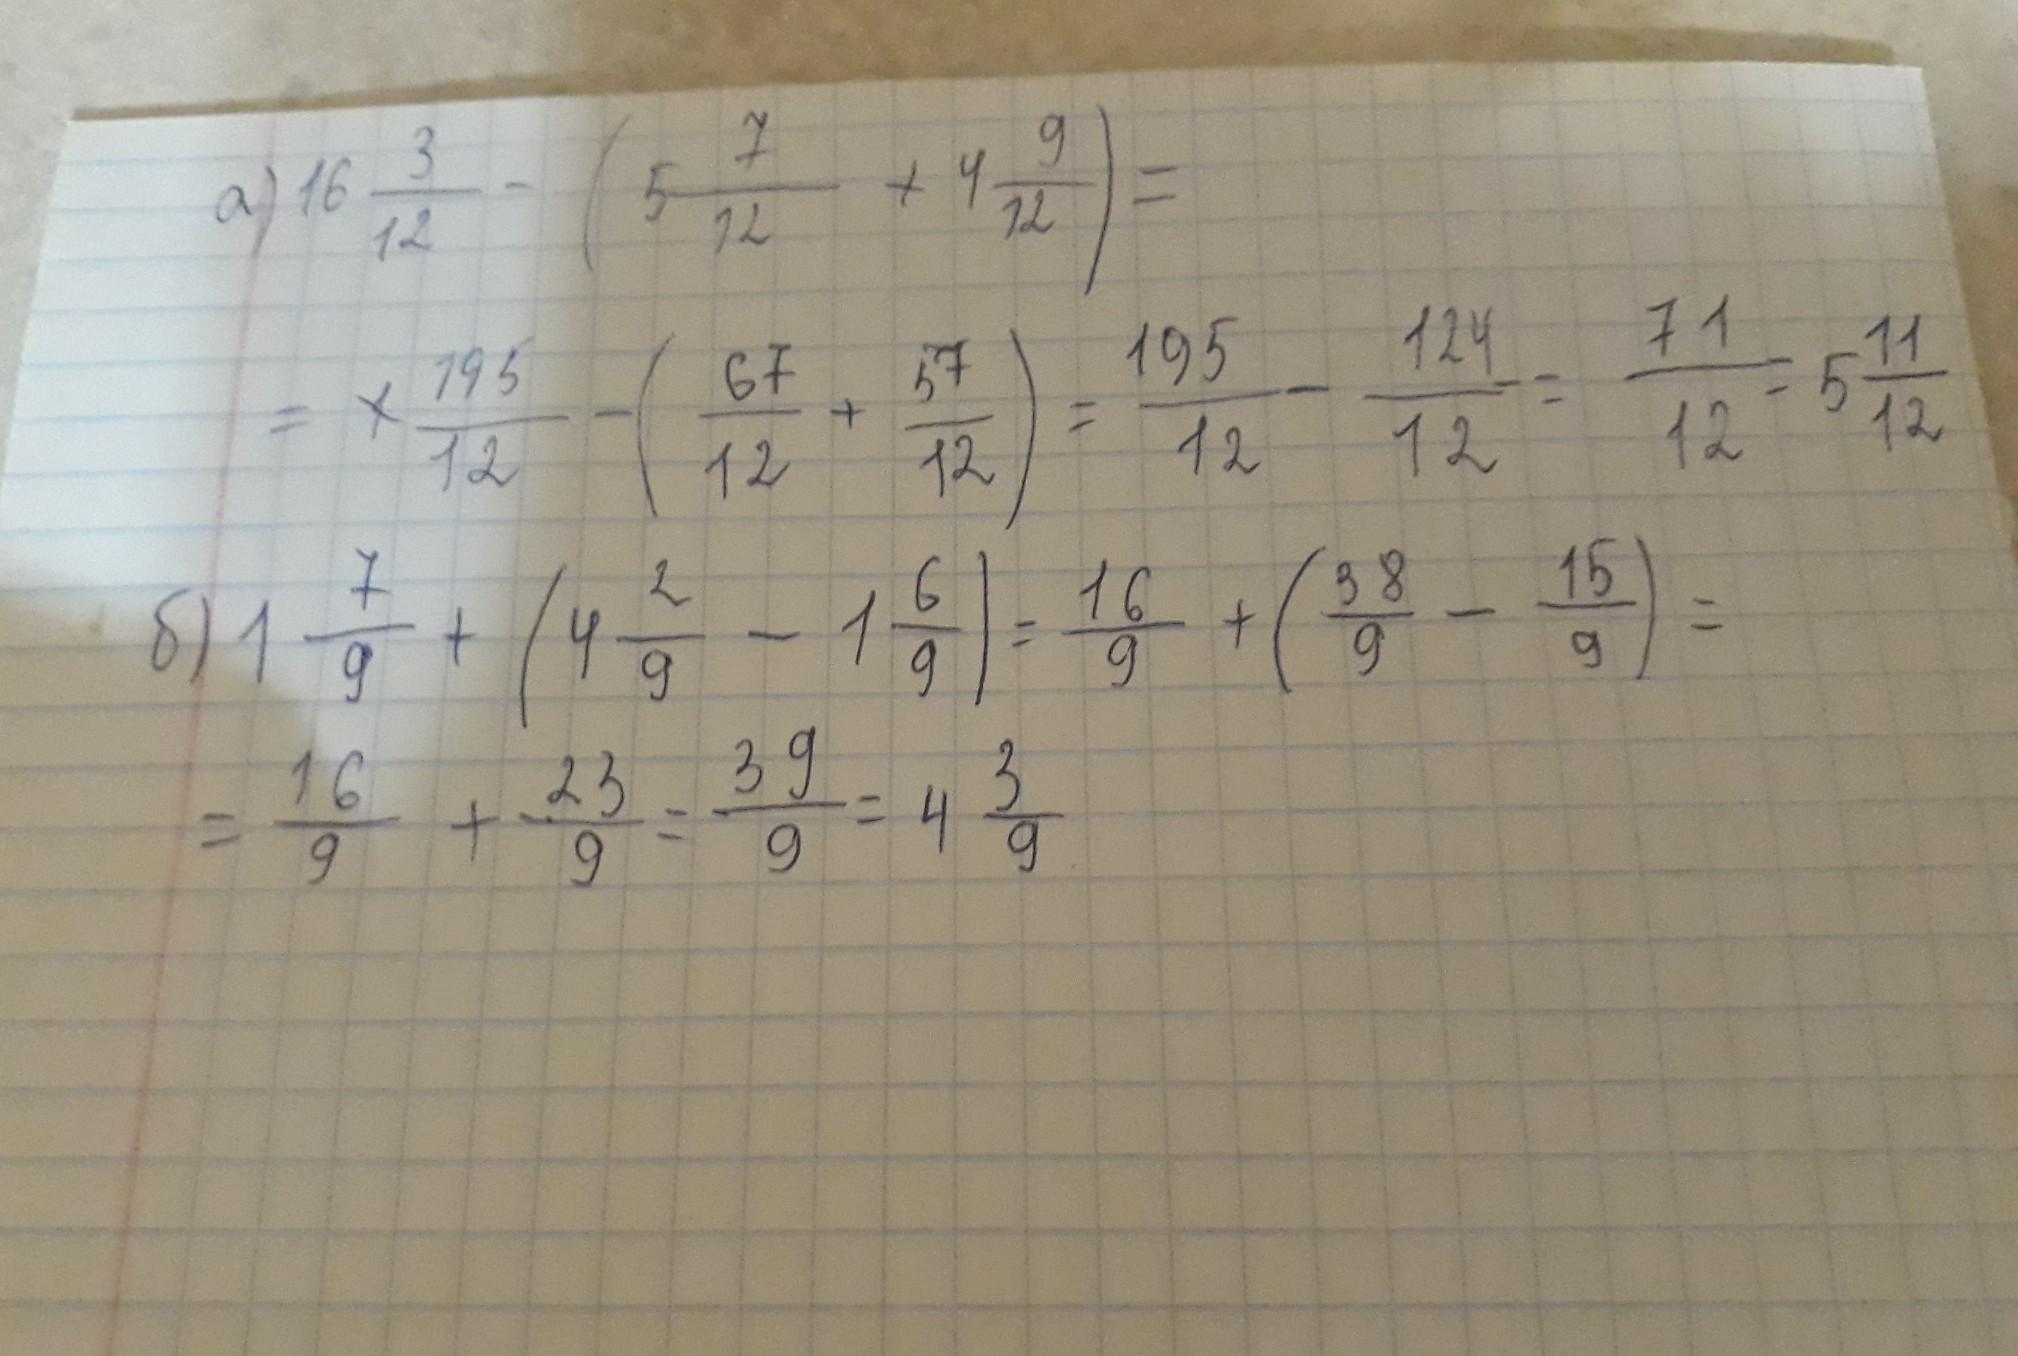 а) 16 3/12 - (5 7/12 + 4 9/12) =
= × 195/12 - (67/12 + 57/12) = 195/12 - 124/12 = 71/12 = 5 11/12
б) 1 7/9 + (4 2/9 - 1 6/9) = 16/9 + (38/9 - 15/9) =
= 16/9 + 23/9 = 39/9 = 4 3/9